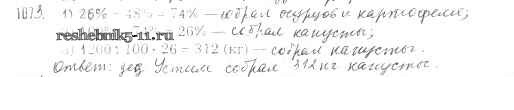 1073. 1) 26% + 48% = 74% — собрал огурцов и картофеля;
reshebnik5-11.ru 26% — собрал капусты;
1200 : 100 · 26 = 312 (кг) — собрал капусты.
Ответ: дед Устим собрал 312 кг капусты.